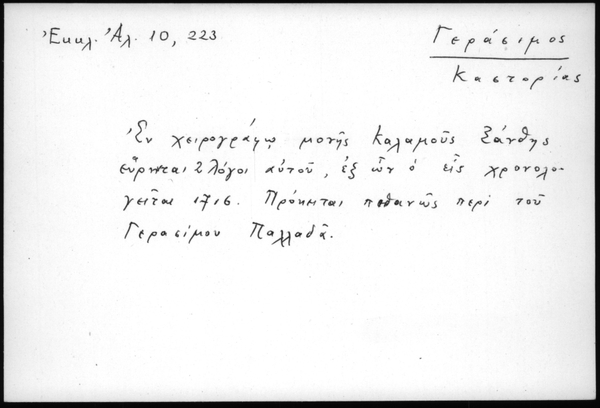 Ἐκκλ. Ἀλ. 10, 223
Γεράσιμος
Καστορίας
Ἐν χειρογράφῳ μονῆς Καλαμοῦς Ξάνθης
εὕρηνται 2 λόγοι αὐτοῦ, ἐξ ὧν ὁ εἷς χρονολο-
γεῖται 1716. Πρόκειται πιθανῶς περὶ τοῦ
Γερασίμου Παλλαδᾶ.